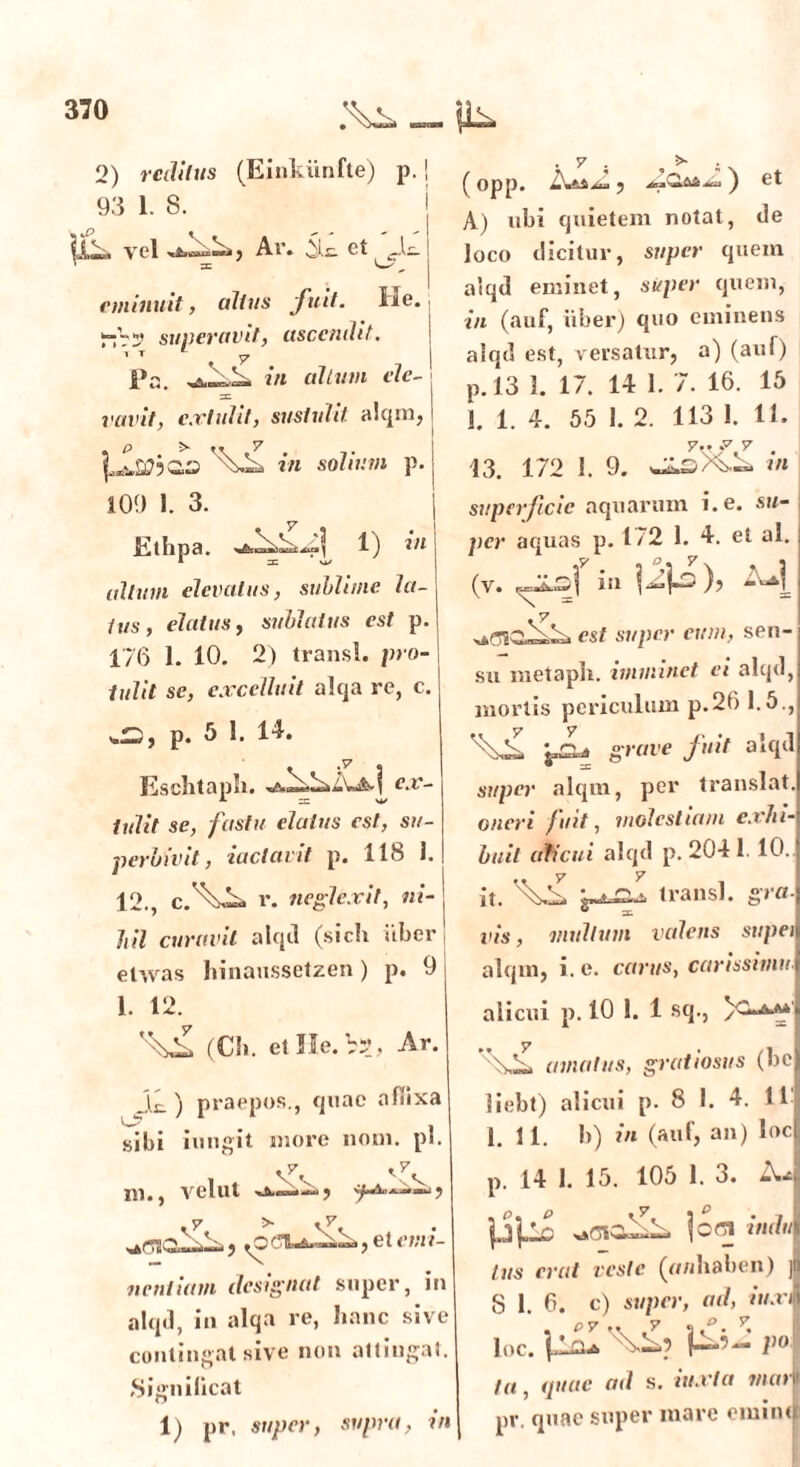 370
ܥܠܐ — ܥܠ.
2) reditus (Einkünfte) p.
93 l. 8.
ܥܠܐ vel ܥܠܝ, Ar. علا et على
eminuit, altus fuit. He.
עלה superavit, ascendit.
Pa. ܥܠܝ in altum ele-
vavit, extulit, sustulit alqm,
ܥܠ ܟܘܪܣܝܐ in solium p.
109 l. 3.
Ethpa. ܐܬܥܠܝ 1) in
altum elevatus, sublime la-
tus, elatus, sublatus est p.
176 l. 10. 2) transl. pro-
tulit se, excelluit alqa re, c.
ܒ, p. 5 l. 14.
Eschtaph. ܐܫܬܥܠܝ ex-
tulit se, fastu elatus est, su-
perbivit, iactavit p. 118 l.
12., c. ܥܠ r. neglexit, ni-
hil curavit alqd (sich über
etwas hinaussetzen) p. 9
l. 12.
ܥܠ (Ch. et He. על, Ar.
على) praepos., quae affixa
sibi iungit more nom. pl.
m., velut ܥܠܝ, ܥܠܝܟ,
ܥܠܘܗܝ, ܥܠܝܗܘܢ, et emi-
nentiam designat super, in
alqd, in alqa re, hanc sive
contingat sive non attingat.
Significat
1) pr. super, supra, in
(opp. ܬܚܝܬ, ܬܚܘܬ) et
A) ubi quietem notat, de
loco dicitur, super quem
alqd eminet, super quem,
in (auf, über) quo eminens
alqd est, versatur, a) (auf)
p. 13 l. 17. 14 l. 7. 16. 15
l. 1. 4. 55 l. 2. 113 l. 11.
13. 172 l. 9. in
superficie aquarum i. e. su-
per aquas p. 172 l. 4. et al.
(v. ܐܦܝܢ in), ܐܝܬ
ܥܠܘܗܝ est super eum, sen-
su metaph. imminet ei alqd,
mortis periculum p. 26 l. 5.,
ܝܩܪ ܥܠ grave fuit alqd
super alqm, per translat.
oneri fuit, molestiam exhi-
buit alicui alqd p. 204 l. 10.
it. ܝܩܝܪ ܥܠ transl. gra-
vis, multum valens super
alqm, i. e. carus, carissimu
alicui p. 10 l. 1 sq., ܪܚܝܡ
ܥܠ amatus, gratiosus (be
liebt) alicui p. 8 l. 4. 11
l. 11. b) in (auf, an) loc
p. 14 l. 15. 105 l. 3.
ܡܐܢܐ ܥܠܘܗܝ ܗܘܐ indu
tus erat veste (anhaben) p
8 l. 6. c) super, ad, iuxt
loc. ܬܪܥܐ ܕܥܠ ܝܡܐ po
ta, quae ad s. iuxta mar
pr. quae super mare emine